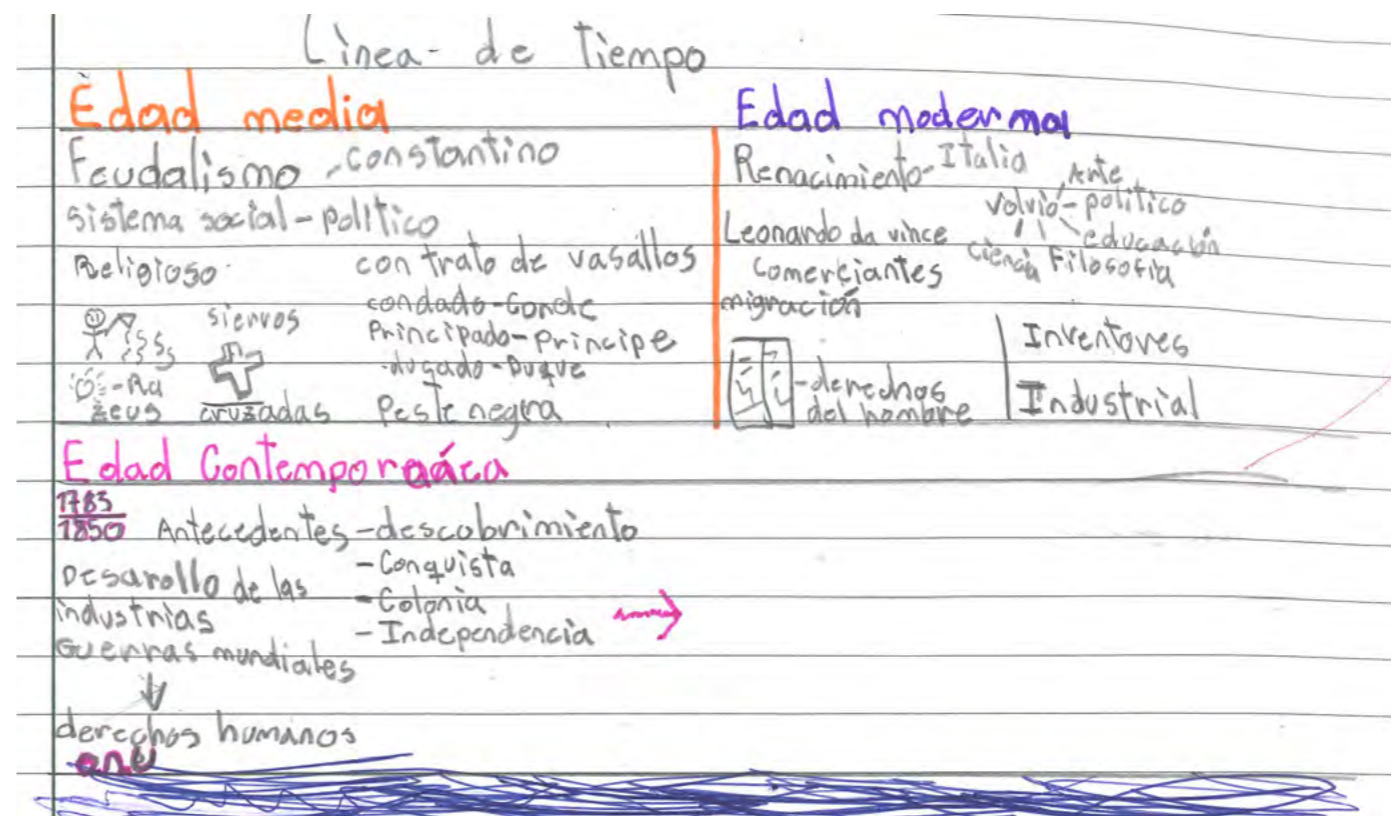 Linea - de Tiempo
Edad media
Feudalismo - constantino
sistema social - político
Religioso
contrato de vasallos
condado - Conde
siervos
Principado - Principe
dugado - Duque
- Ra
zeus
cruzadas
Peste negra
Edad moderma
Renacimiento - Italia
Ante
volvió - político
educación
ciencia Filosofia
Leonardo da vince
comerciantes
migración
- derechos
del hombre
Inventores
Industrial
Edad Contemporaáea
1783
1850
Antecedentes - descobrimiento
- Conquista
- Colonia
- Independencia
Desarollo de las
industrias
Guerras mundiales
derechos humanos
onu